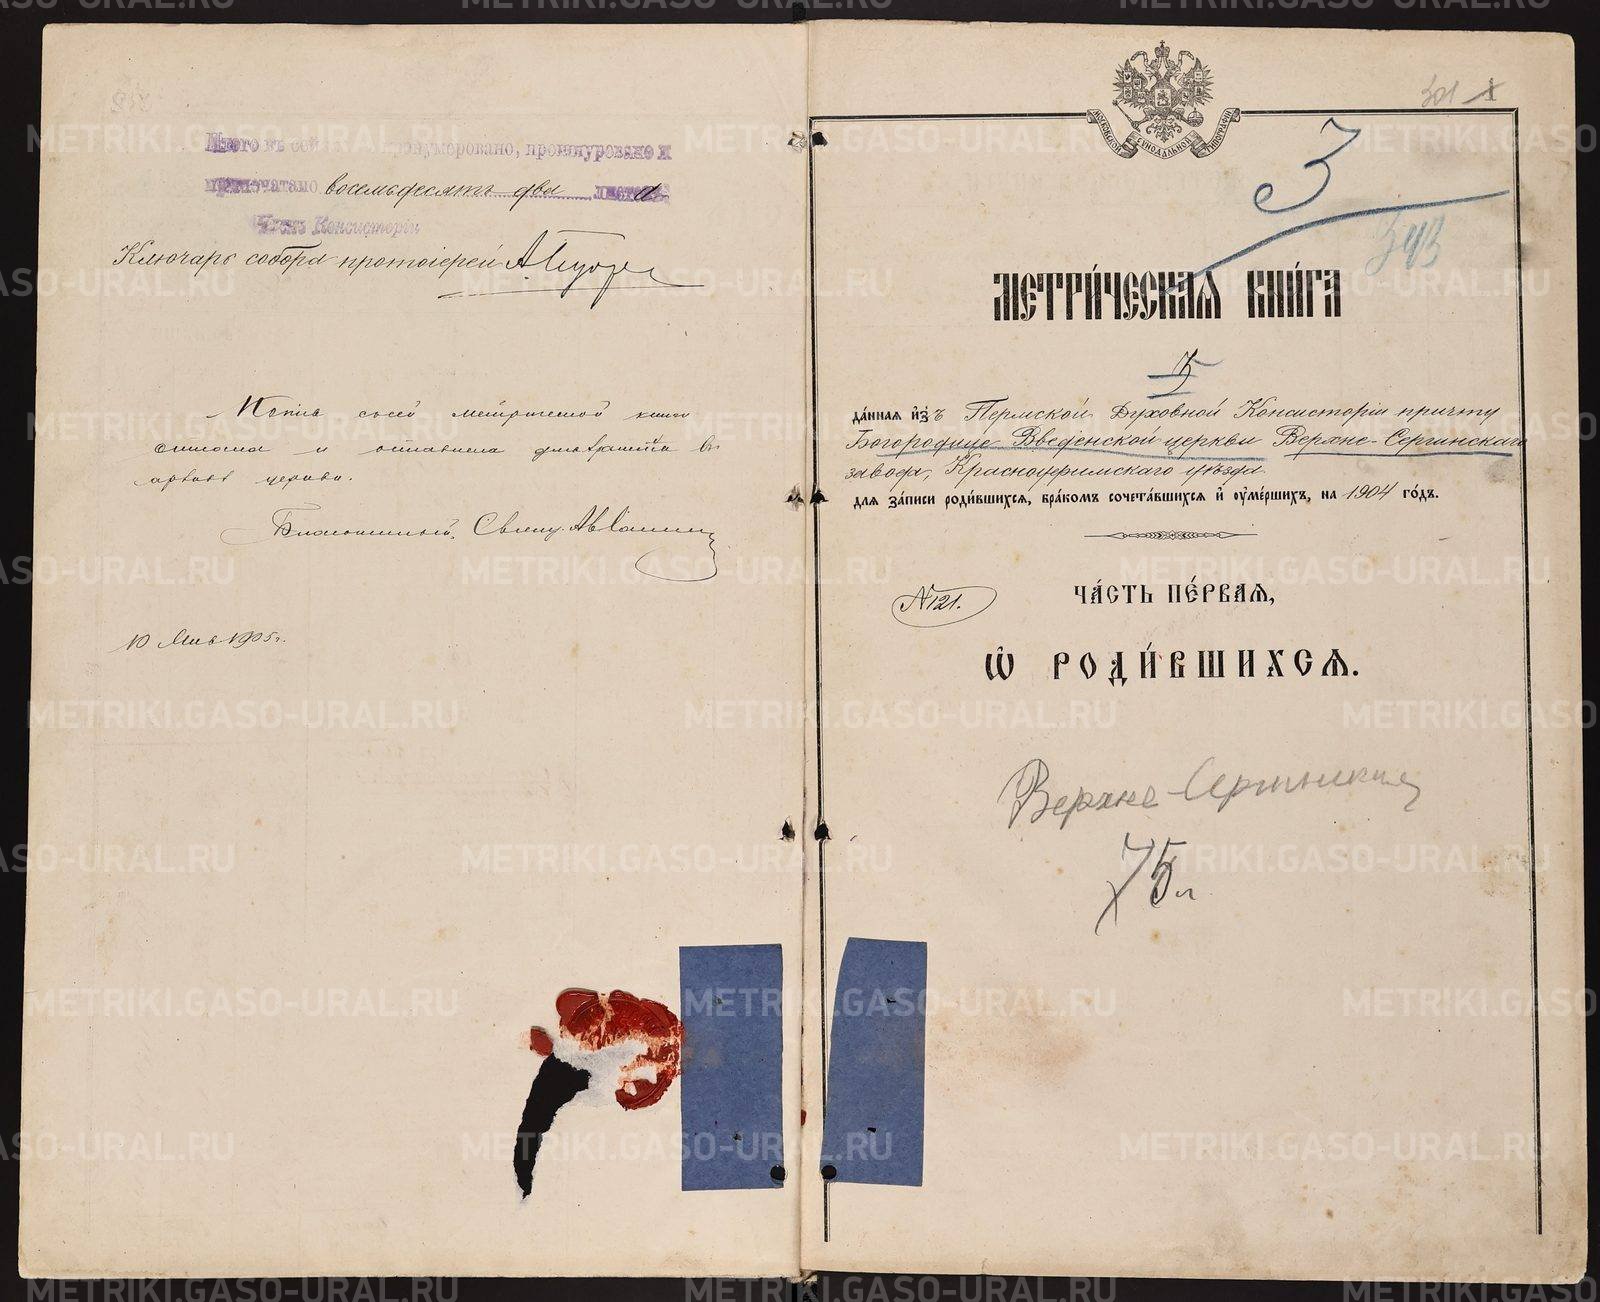 Итого въ сей пронумеровано, прошнуровано и
припечатано восемьдесятъ два листа
Членъ Консисторіи
Ключарь собора протоіерей
Копія сей метрической книги
списана и оставлена для храненія въ
архивѣ церкви.
Благочинный, Свящ.
10 1905 г.
МОСКОВСКОЙ СѴНОДАЛЬНОЙ ТИПОГРАФІИ
301
3
393
МЕТРИ́ЧЕСКАѦ КНИ́ГА
да́нная и҆з̾ Пермской Духовной Консисторіи причту
Богородице-Введенской церкви Верхне-Сергинскаго
завода, Красноуфимскаго уѣзда
для за́писи роди́вшихся, бра́комъ сочета́вшихся и҆ ᲂу҆ме́ршихъ, на 1904 го́дъ.
№ 121.
ЧА́СТЬ ПЕ́РВАѦ,
Ѡ҆ РОДИ́ВШИХСѦ.
Верхне-Сергинский
75 л
METRIKI.GASO-URAL.RU